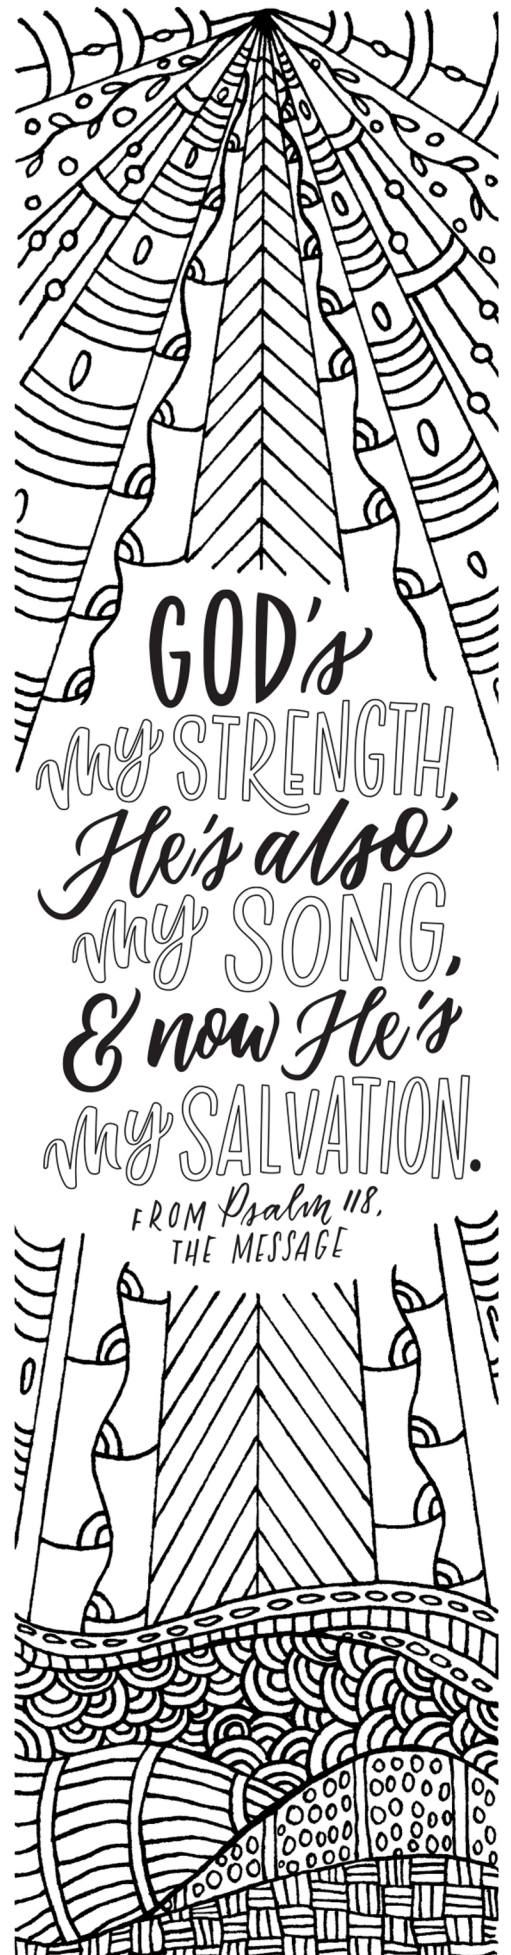 GOD's
my STRENGTH,
He's also
my SONG,
& now He's
my SALVATION.
FROM Psalm 118,
THE MESSAGE